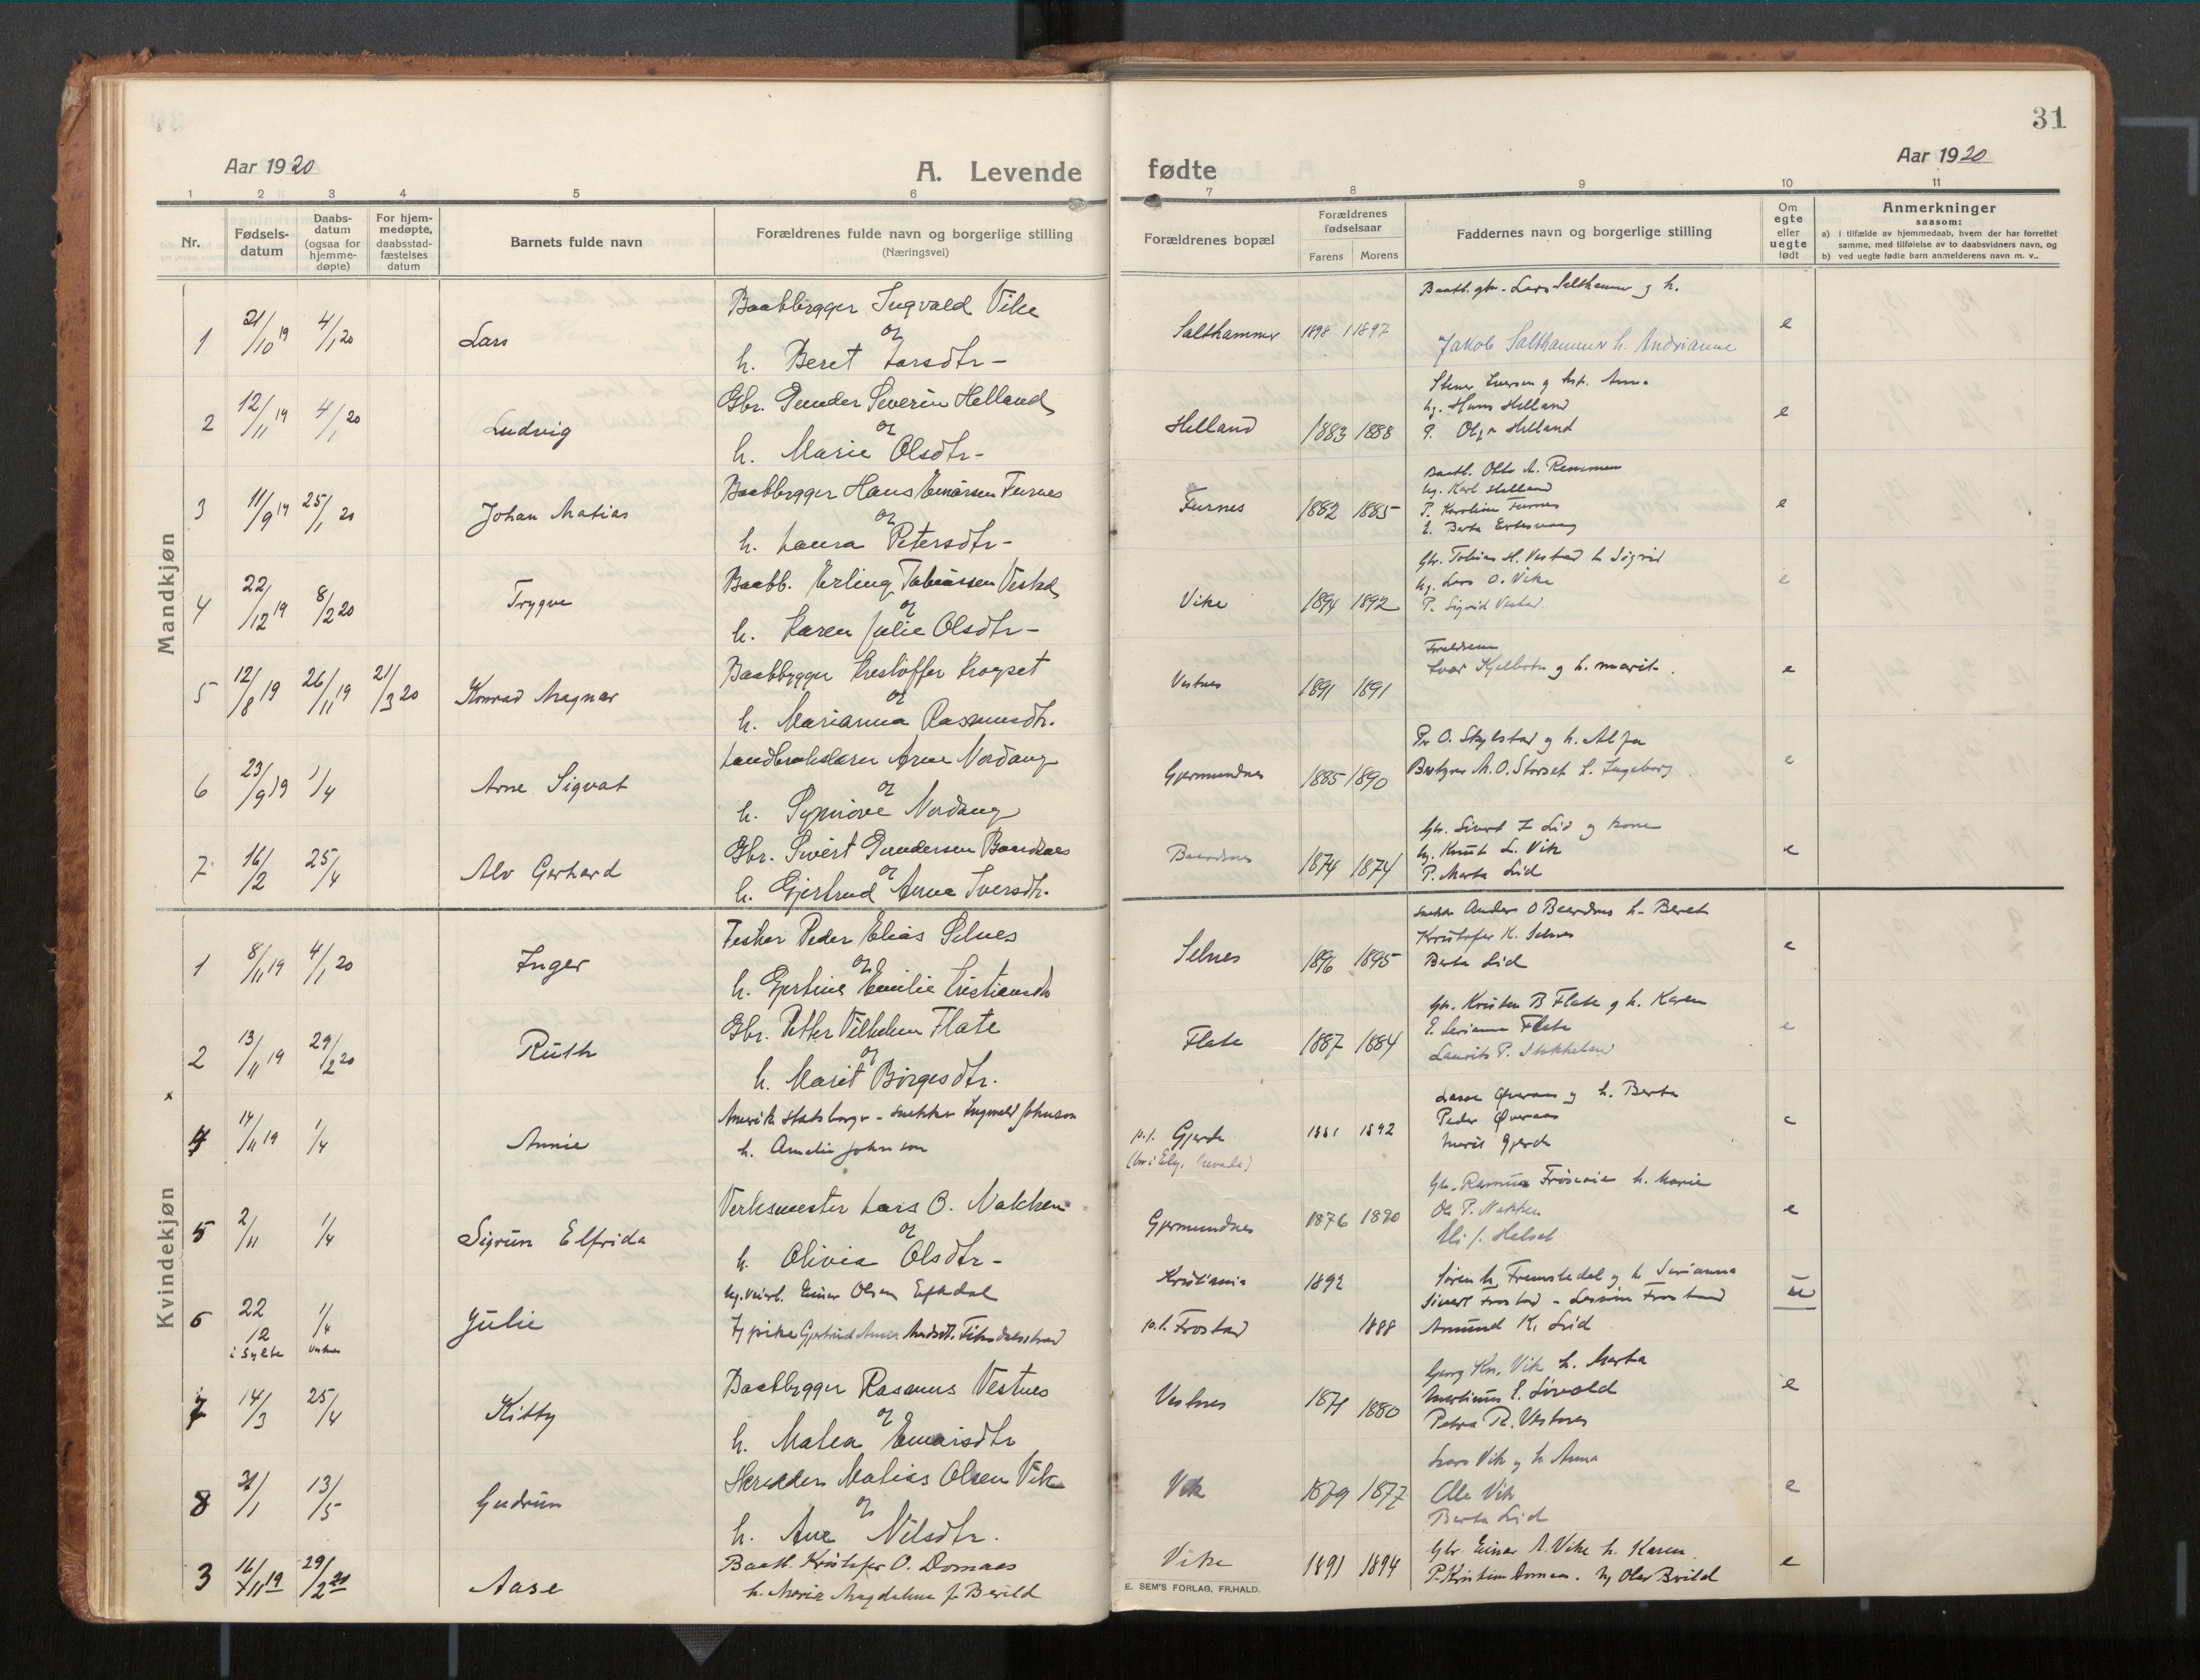 31
Aar 1920
A. Levende
fødte
Aar 1920
1 2 3 4 5 6 7 8 9 10 11
Nr.
Fødsels-
datum
Daabs-
datum
(ogsaa for
hjemme-
døpte)
For hjem-
medøpte,
daabsstad-
fæstelses
datum
Barnets fulde navn
Forældrenes fulde navn og borgerlige stilling
(Næringsvei)
Forældrenes bopæl
Forældrenes
fødselsaar
Farens Morens
Faddernes navn og borgerlige stilling
Om
egte
eller
uegte
født
Anmerkninger
saasom:
a) i tilfælde av hjemmedaab, hvem der har forrettet
samme, med tilføielse av to daabsvidners navn, og
b) ved uegte fødte barn anmelderens navn m. v..
Mandkjøn
1 21/10 19 4/1 20 Lars
Baatbygger Ingvald Vike
og
h. Beret Larsdtr-
Salthammer 1898 1897
Lars Salthammer og h.
Jakob Salthammer h. Andrianne
e
2 12/11 19 4/1 20 Ludvig
Gbr. Gunder Severin Helland
og
h. Marie Olsdtr-
Helland 1883 1888
Iversen og
Ug. Hans Helland
P. Olga Helland
e
3 11/9 19 25/1 20 Johan Matias
Baatbygger Hans Einarsen Furnes
og
h. Laura Petersdtr-
Furnes 1882 1885
Baatb. Otto A. Remmem
Ug. Karl Helland
P. Karoline Furnes
e
4 22/12 19 8/2 20 Trygve
Baatb. Erling Tobiassen Vestad
og
h. Karen Julie Olsdtr-
Vike 1894 1892
Gbr. Tobias H. Vestad h. Sigrid
Ug. Lars O. Vike
P. Sigrid Vestad
e
5 12/8 19 26/11 19 21/3 20 Konrad Magnar
Baatbygger Kristoffer Krogset
og
h. Marianna Rasmusdtr.
Vestnes 1891 1891
Forældrene
Ivar og h. Marit
e
6 23/9 19 1/4 Arne Sigvat
Landbrukslærer Arne Nordang
og
h. Synnøve Nordang
Gjermundnes 1885 1890
O. Skylstad og h. Alfa
Bestyrer M. O. Storset h. Ingeborg
e
7 16/2 25/4 Alv Gerhard
Gbr. Sivert Gundersen Baardsnes
og
h. Gjertrud Anne Iversdtr.
Baardsnes 1874 1874
Gbr. Sivert I Lid og kone
Ug. Knut L. Vik
P. Marta Lid
e
Kvindekjøn
1 8/11 19 4/1 20 Inger
Fisker Peder Elias Selnes
og
h. Gjertine Emilie Kristiansdtr
Selnes 1896 1895
Anders O Baardsnes h. Beret
Kristofer K. Selnes
Berta Lid
e
2 13/11 19 29/2 20 Ruth
Gbr. Petter Vilhelm Flate
og
h. Marit Børgesdtr.
Flate 1887 1884
Gbr. Kristen B Flate og h. Karen
Flate
Laurits P. Stokkeland
e
x
4 14/11 19 1/4 Annie
Amerik statsborger - snekker Ingvald Johnson
h. Amalie Johnson
p.t. Gjerde
(bor i Ely, Nevada)
1881 1892
Lasse Øveraas og h. Berta
Peder Øveraas
Marit Gjerde
e
5 2/11 1/4 Sigrun Elfrida
Verksmester Lars O. Nakken
og
h. Olivia Olsdtr-
Gjermundnes 1876 1890
Gbr. Rasmus h. Marie
Ole P. Nakken
Helset
e
6 22/12 1/4 Julie
i Sylte
Einar Olsen Eftedal
pike Gjertrud Anna
Kristiania 1892
p.t. Frostad 1888
Søren h. Fremstedal og h. Serianna
Sivert Frostad -
Amund K. Lid
u
7 14/3 25/4 Kitty
Baatbygger Rasmus Vestnes
og
h. Matea Einarsdtr
Vestnes 1871 1880
Georg Kr. Vik h. Marta
Martinus
Petra R. Vestnes
e
8 21/1 13/5 Gudrun
Skrædder Matias Olsen Vik
og
h. Ane Nilsdtr.
Vik 1879 1877
Lars Vik og h Anna
Ole Vik
Berta Lid
e
3 16/11 19 29/2 20 Aase
Baatb. Kristofer O. Domaas
h. Maria Magdalena f. Breild
Vike 1891 1894
Gbr. Einar A. Vike h. Karen
P. Kristine Domaas. Ug Olav Breild
e
E. SEM'S FORLAG, FR.HALD.